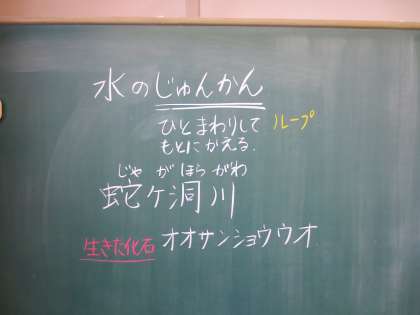 水のじゅんかん
ひとまわりして ループ
もとにかえる.
じゃ が ほら がわ
蛇ケ洞川
生きた化石 オオサンショウウオ